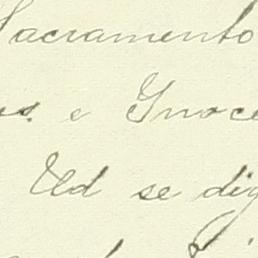 Sacramento
es. e Ynoce
Ud se dig